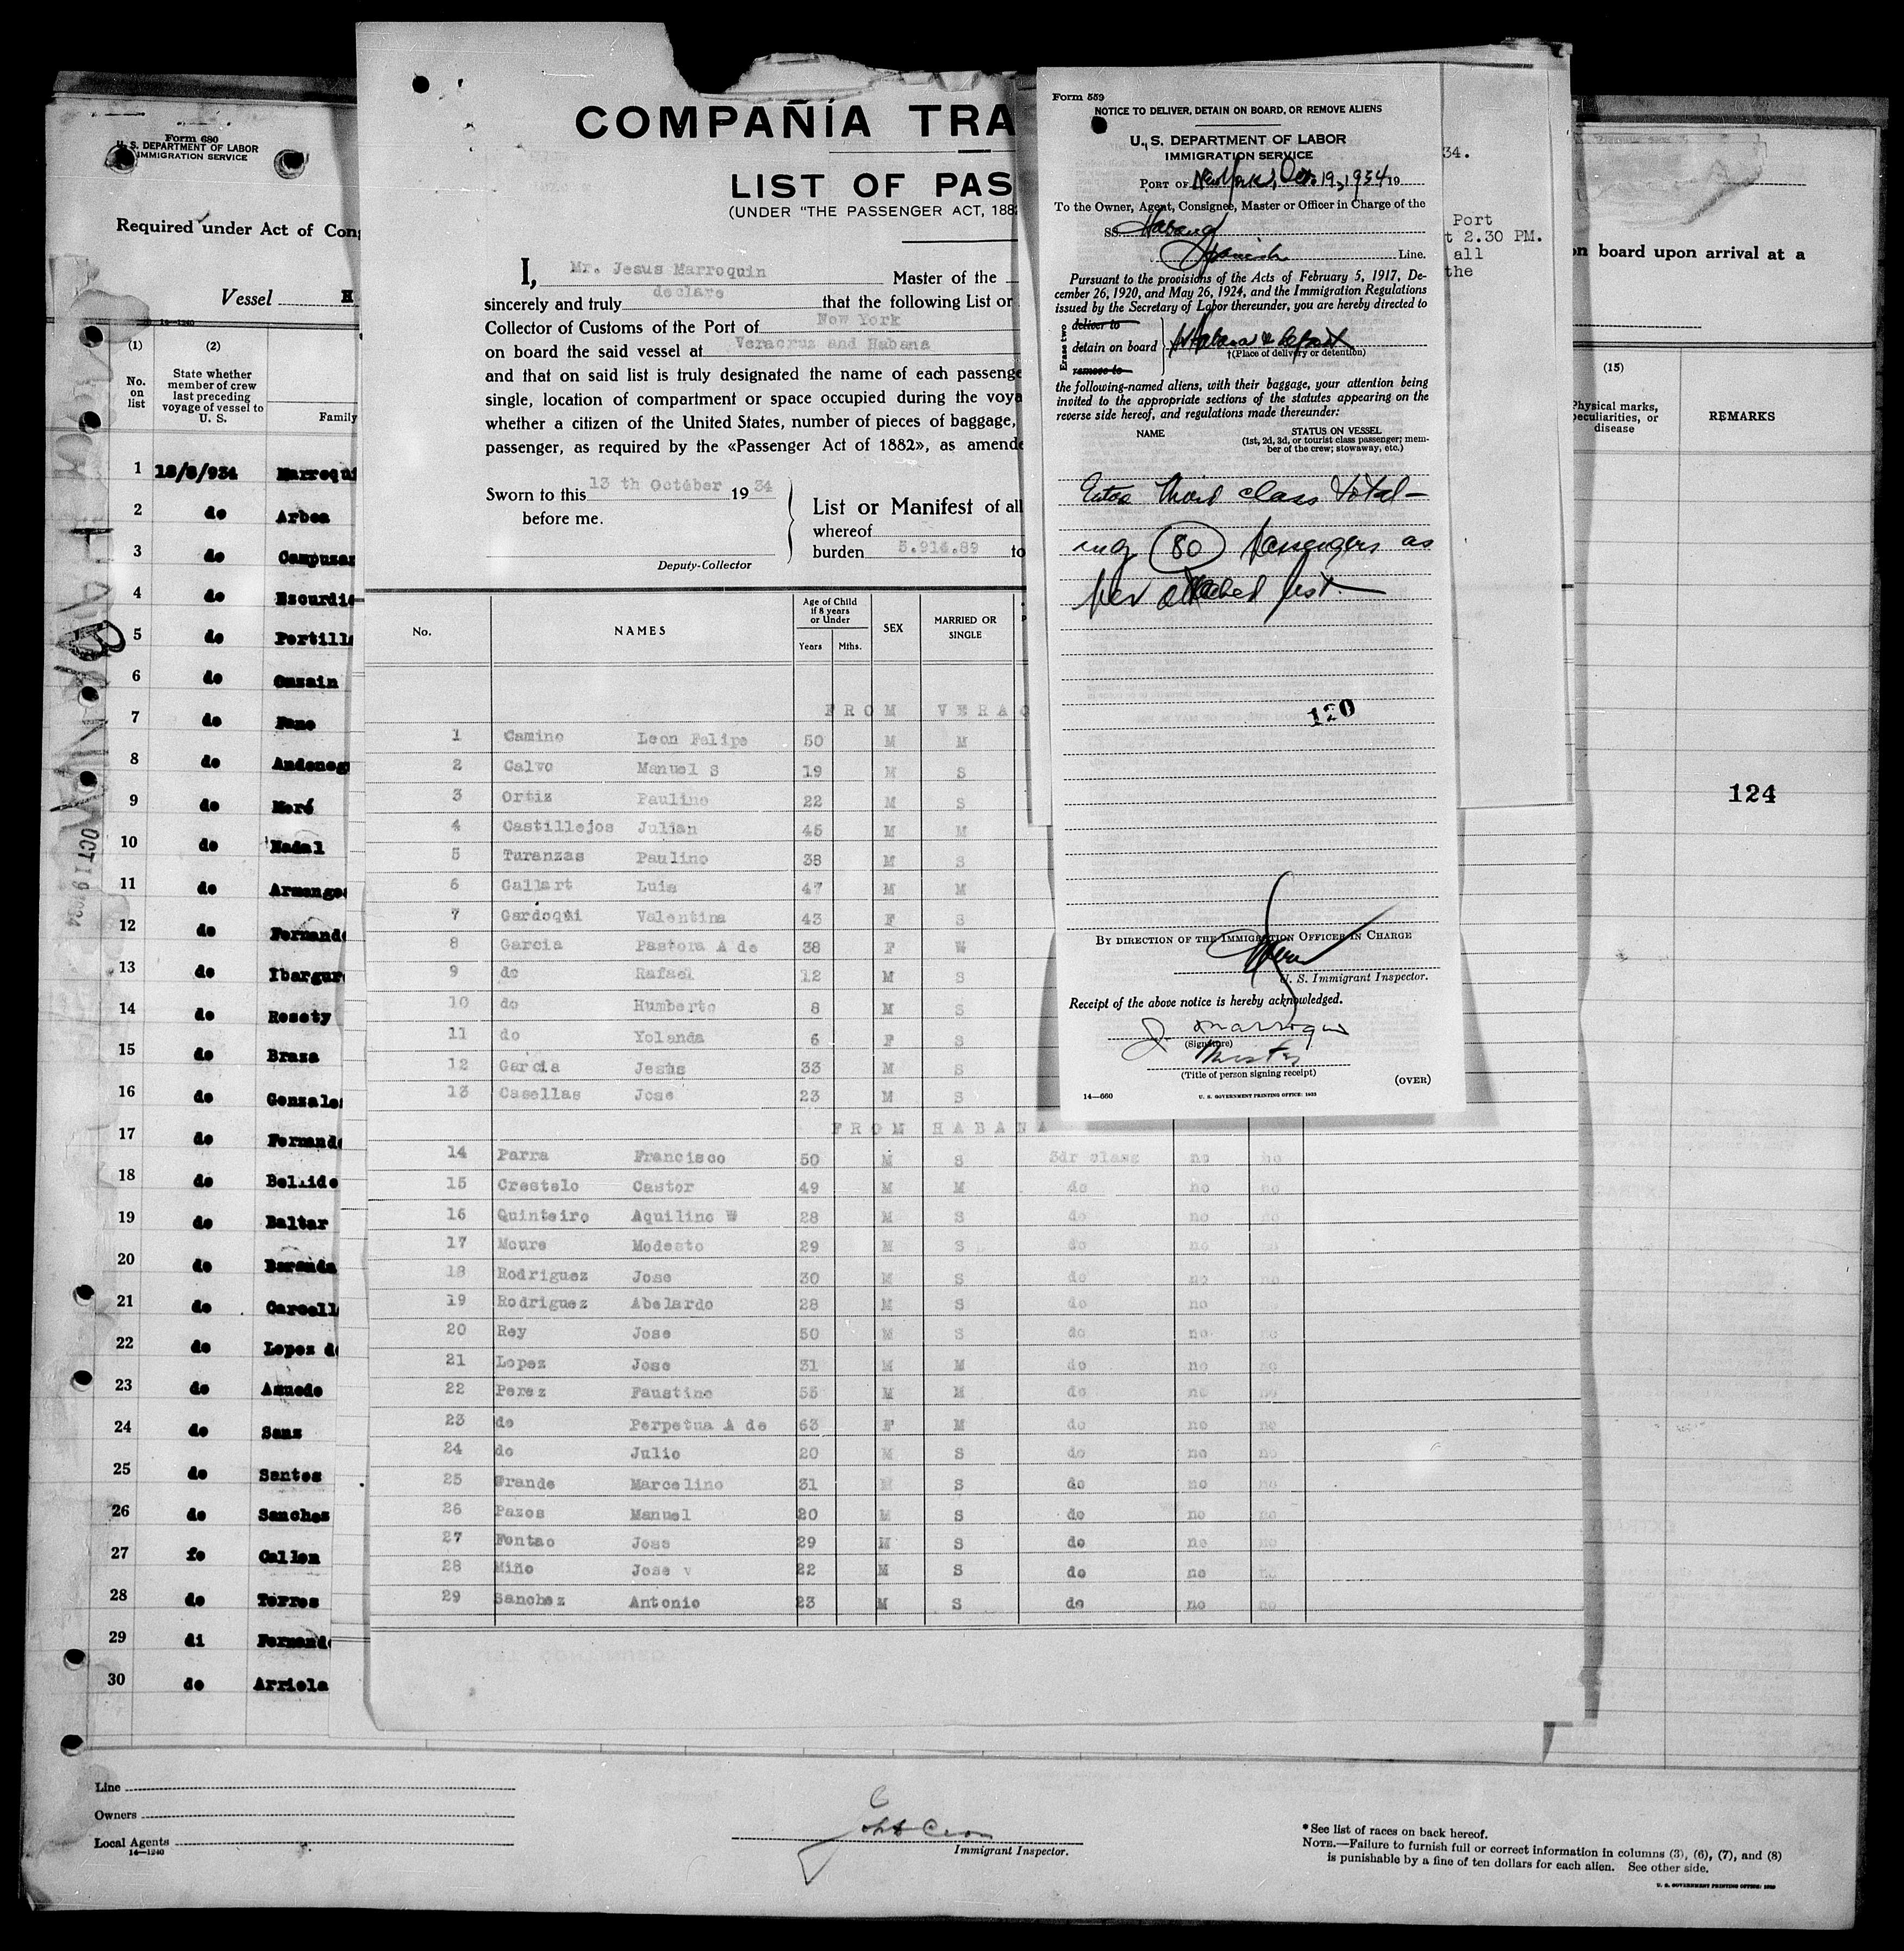 Form 680
U. S. DEPARTMENT OF LABOR
IMMIGRATION SERVICE
Required under Act of Cong
Vessel H
14-1240
(1) (2)
No. on list
State whether member of crew last preceding voyage of vessel to U. S.
Family
1 18/8/934 Marroqui
2 do Arbea
3 do Campuzan
4 do Escurdia
5 do Portill
6 do
7 do
8 do
9 do Moré
10 do Nadal
11 do Armengo
12 do Fernande
13 do Ibargure
14 do Rosety
15 do Braza
16 do Gonzales
17 do Fernande
18 do Bellido
19 do Baltar
20 do
21 do
22 do Lopez d
23 do
24 do Sanz
25 do Santos
26 do Sanchez
27 fo
28 do Torres
29 di Fernande
30 do Arriola
OCT 19 1934
COMPAÑÍA TRA
LIST OF PAS
(UNDER "THE PASSENGER ACT, 188
I, Mr. Jesus Marroquin Master of the
sincerely and truly declare that the following List or
Collector of Customs of the Port of New York
on board the said vessel at Veracruz and Habana
and that on said list is truly designated the name of each passenge
single, location of compartment or space occupied during the voya
whether a citizen of the United States, number of pieces of baggage,
passenger, as required by the «Passenger Act of 1882», as amende
Sworn to this 13 th October 19 34
before me.
Deputy-Collector
List or Manifest of all
whereof
burden 5.914.89 to
No. NAMES
Age of Child if 8 years or Under
Years Mths.
SEX
MARRIED OR SINGLE
FROM VERAC
1 Camino Leon Felipe 50 M M
2 Calvo Manuel S 19 M S
3 Ortiz Paulino 22 M S
4 Castillejos Julian 45 M M
5 Turanzas Paulino 38 M S
6 Gallart Luis 47 M M
7 Gardoqui Valentina 43 F S
8 Garcia Pastora A de 38 F W
9 do Rafael 12 M S
10 do Humberto 8 M S
11 do Yolanda 6 F S
12 Garcia Jesus 33 M S
13 Casellas Jose 23 M S
FROM HABANA
14 Parra Francisco 50 M S 3dr class no no
15 Crestelo Castor 49 M M do no no
16 Quinteiro Aquilino W 28 M S do no no
17 Moure Modesto 29 M S do no
18 Rodriguez Jose 30 M S do no no
19 Rodriguez Abelardo 28 M S do no
20 Rey Jose 50 M S do no no
21 Lopez Jose 31 M M do no no
22 Perez Faustino 55 M M do no no
23 do Perpetua A de 63 F M do no no
24 do Julio 20 M S do no no
25 Grande Marcelino 31 M S do no no
26 Pazos Manuel 20 M S do no no
27 Fontao Jose 29 M S do no no
28 Miño Jose v 22 M S do no no
29 Sanchez Antonio 23 M S do no no
Form 559
NOTICE TO DELIVER, DETAIN ON BOARD, OR REMOVE ALIENS
U. S. DEPARTMENT OF LABOR
IMMIGRATION SERVICE
PORT OF New York, Oct. 19, 1934 19
To the Owner, Agent, Consignee, Master or Officer in Charge of the
SS. Habana
Spanish Line.
Pursuant to the provisions of the Acts of February 5, 1917, De-
cember 26, 1920, and May 26, 1924, and the Immigration Regulations
issued by the Secretary of Labor thereunder, you are hereby directed to
Erase two
deliver to
detain on board Habana & deport
remove to
†(Place of delivery or detention)
the following-named aliens, with their baggage, your attention being
invited to the appropriate sections of the statutes appearing on the
reverse side hereof, and regulations made thereunder:
NAME STATUS ON VESSEL
(1st, 2d, 3d, or tourist class passenger; mem-
ber of the crew; stowaway, etc.)
third class total-
ing (80) passengers as
per attached list.
120
BY DIRECTION OF THE IMMIGRATION OFFICER IN CHARGE
U. S. Immigrant Inspector.
Receipt of the above notice is hereby acknowledged.
J. Marroquin
(Signature)
Master
(Title of person signing receipt)
(OVER)
14—660 U. S. GOVERNMENT PRINTING OFFICE: 1933
34.
Port
t 2.30 PM.
all
the
on board upon arrival at a
(15)
Physical marks, peculiarities, or disease
REMARKS
124
Line
Owners
Local Agents
14—1240
Immigrant Inspector.
* See list of races on back hereof.
NOTE.—Failure to furnish full or correct information in columns (3), (6), (7), and (8)
is punishable by a fine of ten dollars for each alien. See other side.
U. S. GOVERNMENT PRINTING OFFICE: 1929